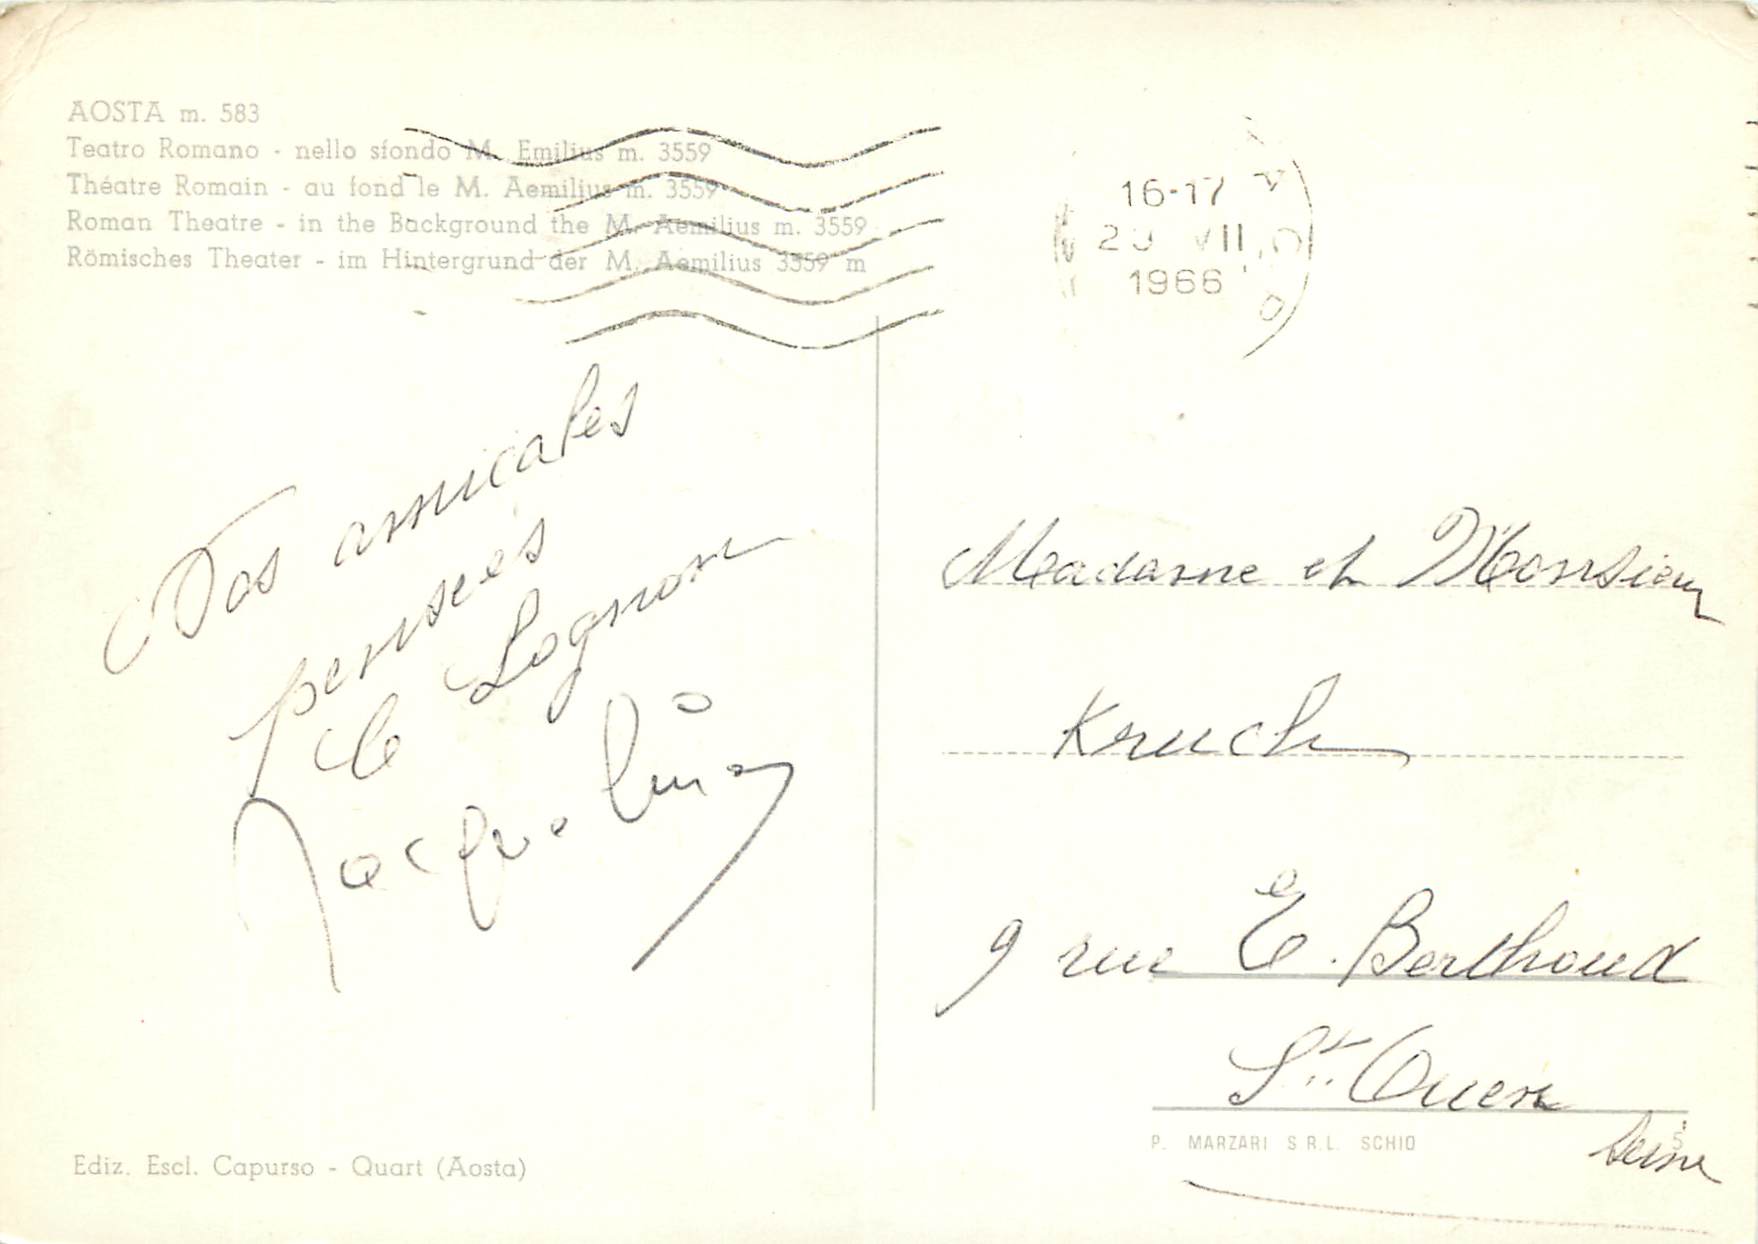 AOSTA m. 583
Teatro Romano - nello sfondo M. Emilius m. 3559
Théatre Romain - au fond le M. Aemilius m. 3559
Roman Theatre - in the Background the M. Aemilius m. 3559
Römisches Theater - im Hintergrund der M. Aemilius 3559 m
16-17
VII
1966
amicales
pensées
Lognon
Jacqueline
Madame et Monsieur
Kruch
9 rue E. Berthoud
St. Ouen
Seine
P. MARZARI S.R.L. SCHIO
5
Ediz. Escl. Capurso - Quart (Aosta)